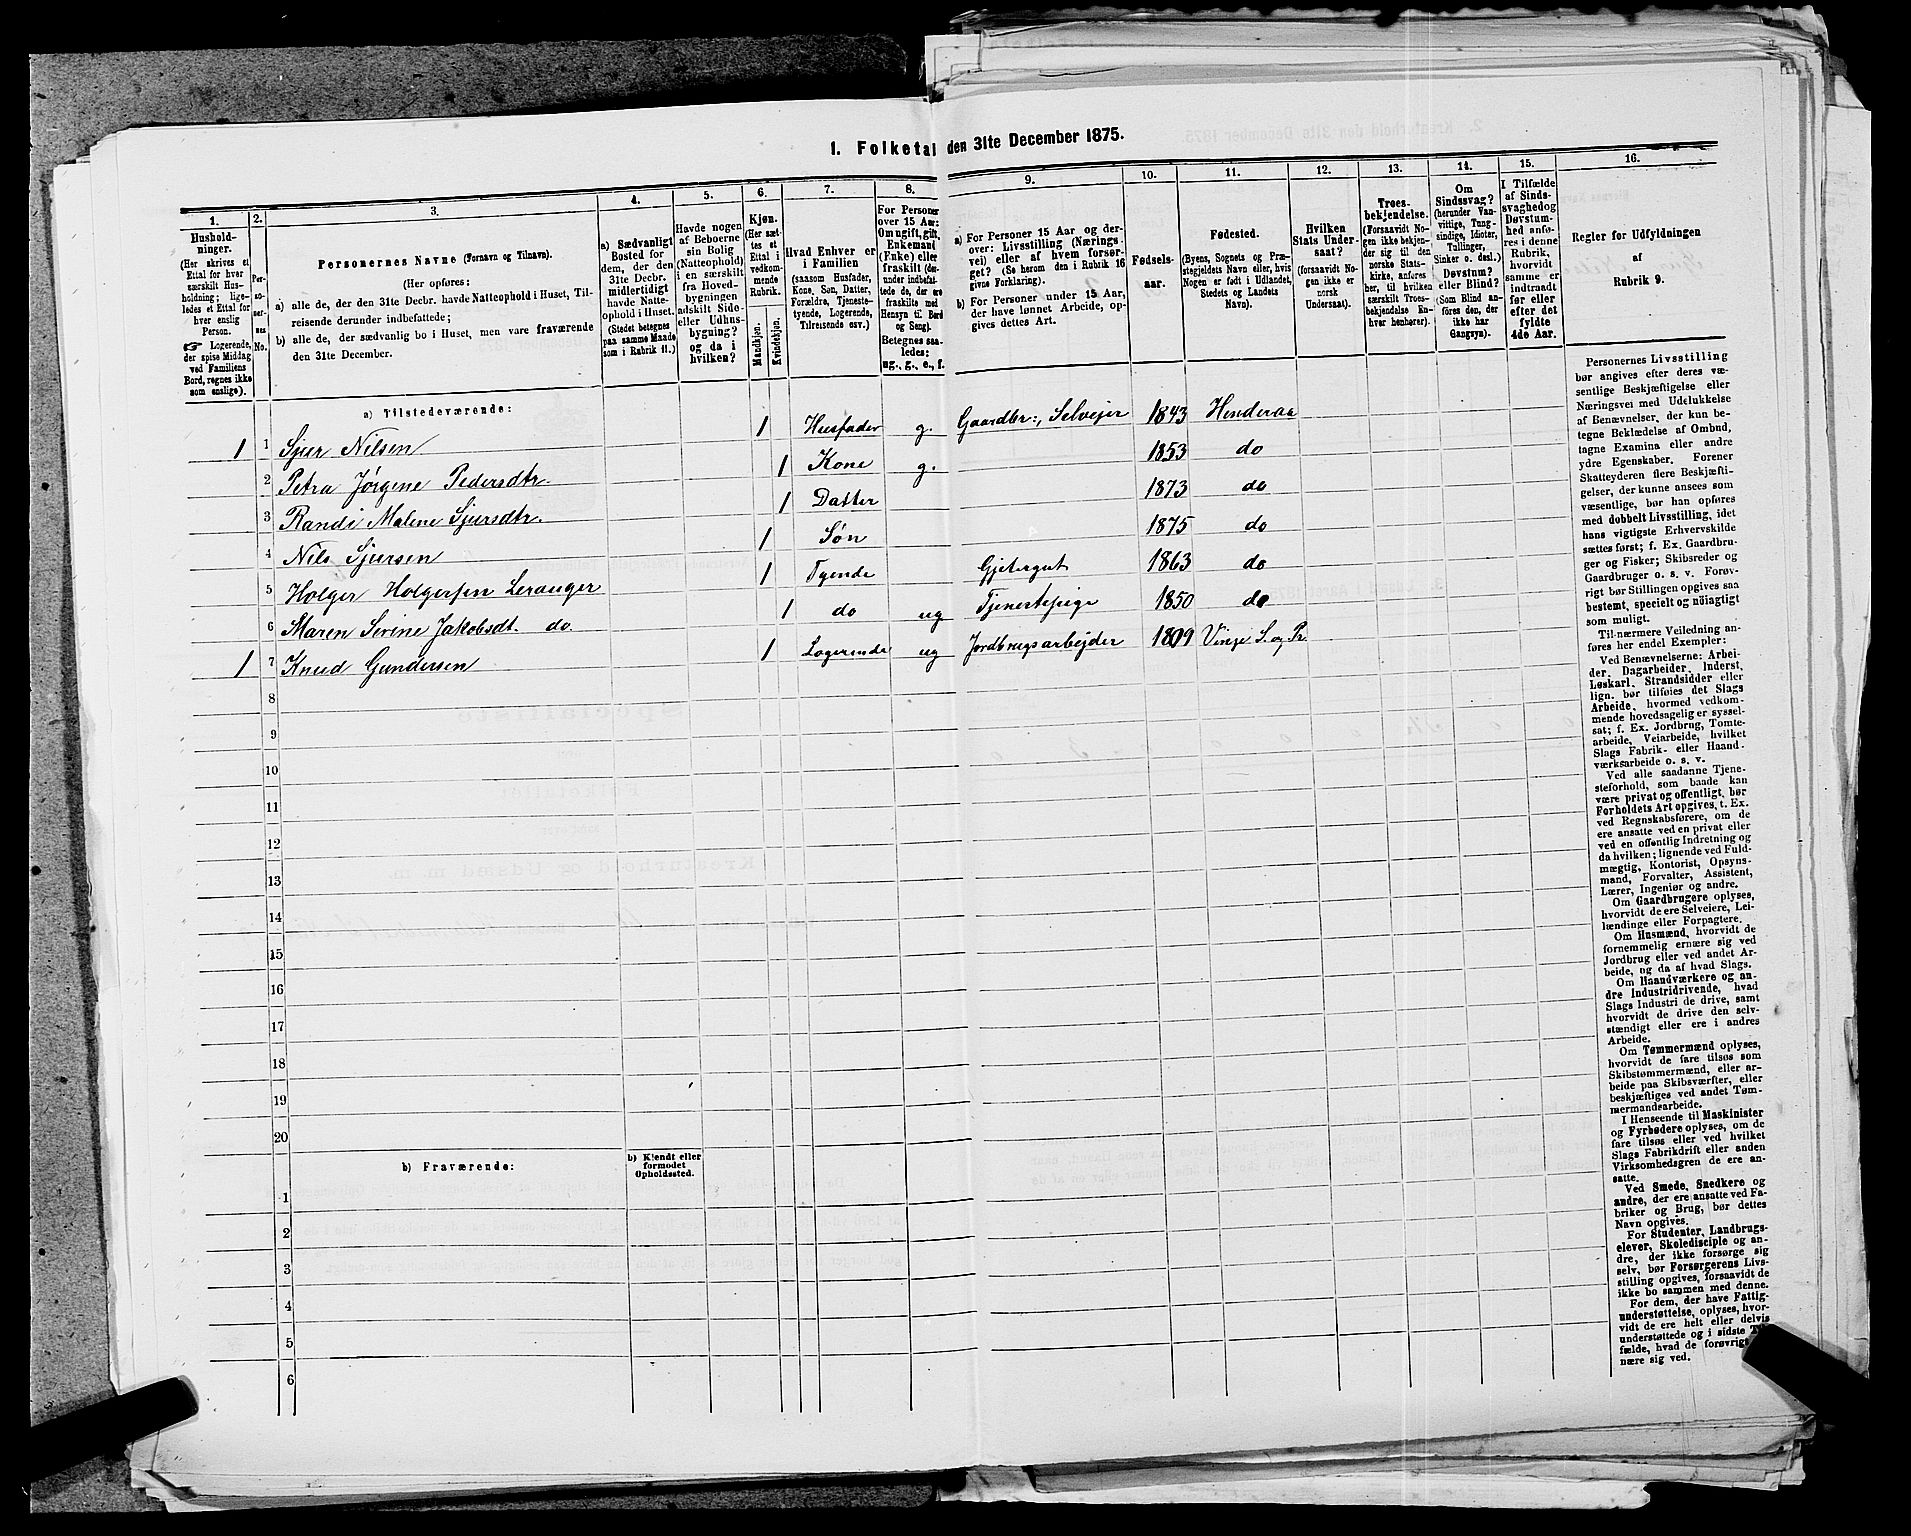 1. Folketal den 31te December 1875.
1.
2.
3.
4.
5.
6.
7.
8.
9.
10.
11.
12.
13.
14.
15.
16.
Hushold-
ninger.
(Her skrives et
Ettal for hver
særskilt Hus-
holdning; lige-
ledes et Ettal for
hver enslig
Person.
☞ Logerende,
der spise Middag
ved Familiens
Bord, regnes ikke
som enslige).
Per-
so-
ner-
nes
No.
Personernes Navne (Fornavn og Tilnavn).
(Her opføres:
a) alle de, der den 31te Decbr. havde Natteophold i Huset, Til-
reisende derunder indbefattede;
b) alle de, der sædvanlig bo i Huset, men vare fraværende
den 31te December.
a) Sædvanligt
Bosted for
dem, der den
31te Decbr.
midlertidigt
havde Natte-
ophold i Huset.
(Stedet betegnes
paa samme Maade
som i Rubrik 11.)
Havde nogen
af Beboerne
sin Bolig
(Natteophold)
i en særskilt
fra Hoved-
bygningen
adskilt Side-
eller Udhus-
bygning?
og da i
hvilken?
Kjøn.
(Her sæt-
tes et
Ettal i
vedkom-
mende
Rubrik.
Mandkjøn.
Kvindekjøn.
Hvad Enhver er
i Familien
(saasom Husfader,
Kone, Søn, Datter,
Forældre, Tjeneste-
tyende, Logerende,
Tilreisende osv.)
For Personer
over 15 Aar:
Om ugift, gift,
Enkemand
(Enke) eller
fraskilt (der-
under indbefat-
tede de, der ere
fraskilte med
Hensyn til Bord
og Seng).
Betegnes saa-
ledes:
ug., g., e., f.
a) For Personer 15 Aar og der-
over: Livsstilling (Nærings-
vei) eller af hvem forsør-
get? (Se herom den i Rubrik 16
givne Forklaring).
b) For Personer under 15 Aar,
der have lønnet Arbeide, op-
gives dettes Art.
Fødsels-
aar.
Fødested.
(Byens, Sognets og Præ-
stegjeldets Navn eller, hvis
Nogen er født i Udlandet,
Stedets og Landets
Navn).
Hvilken
Stats Under-
saat?
(forsaavidt No-
gen ikke er
norsk
Undersaat).
Troes-
bekjendelse.
(Forsaavidt No-
gen ikke bekjen-
der sig til den
norske Stats-
kirke, anføres
her, til hvilken
særskilt Troes-
bekjendelse En-
hver henhører).
Om
Sindssvag?
(herunder Van-
vittige, Tung-
sindige, Idioter,
Tullinger,
Sinker o. desl.)
Døvstum?
eller Blind?
(Som Blind an-
føres den, der
ikke har
Gangsyn).
I Tilfælde
af Sinds-
svaghed og
Døvstum-
hed anfø-
res i denne
Rubrik,
hvorvidt
samme er
indtraadt
før eller
efter det
fyldte
4de Aar.
Regler for Udfyldningen
af
Rubrik 9.
a) Tilstedeværende:
1 1 Sjur Nilsen 1 Husfader g. Gaardbr:, Selvejer 1843 Henderaa
2 Petra Jørgene Pedersdtr. 1 Kone g. 1853 do
3 Randi Malene Sjursdtr. 1 Datter 1873 do
4 Nils Sjursen 1 Søn 1875 do
5 Holger Holgersen Leranger 1 Tyende Gjetergut 1863 do
6 Maren Serine Jakobsdt. do. 1 do ug Tjenestepige 1850 do
1 7 Knud Gundersen 1 Logerende ug Jordbrugsarbejder 1809 Vinje S. og Pr.
8
9
10
11
12
13
14
15
16
17
18
19
20
b) Fraværende:
b) Kjendt eller
formodet
Opholdssted.
1
2
3
4
5
6
Personernes Livsstilling
bør angives efter deres væ-
sentlige Beskjæftigelse eller
Næringsvei med Udelukkelse
af Benævnelser, der kun be-
tegne Beklædelse af Ombud,
tagne Examina eller andre
ydre Egenskaber. Forener
Skatteyderen flere Beskjæfti-
gelser, der kunne ansees som
væsentlige, bør han opføres
med dobbelt Livsstilling, idet
hans vigtigste Erhvervskilde
sættes først; f. Ex. Gaardbru-
ger og Fisker; Skibsreder og
Gaardbruger o. s. v. Forøv-
rigt bør Stillingen opgives saa
bestemt, specielt og nöiagtigt
som muligt.
Til nærmere Veiledning an-
føres her endel Exempler:
Ved Benævnelserne: Arbei-
der, Dagarbeider, Inderst,
Løskarl, Strandsidder eller
lign. bør tilføies det Slags
Arbeide, hvormed vedkom-
mende hovedsagelig er syssel-
sat; f. Ex. Jordbrug, Tomte-
arbeide, Veiarbeide, hvilket
Slags Fabrik- eller Haand-
værksarbeide o. s. v.
Ved alle saadanne Tjene-
steforhold, som baade kan
være privat og offentligt, bør
Forholdets Art opgives, t. Ex.
ved Regnskabsførere, om de
ere ansatte ved en privat eller
ved en offentlig Indretning og
da hvilken; lignende ved Fuld-
mægtig, Kontorist, Opsyns-
mand, Forvalter, Assistent,
Lærer, Ingeniør og andre.
Om Gaardbrugere oplyses,
hvorvidt de ere Selveiere, Lei-
lændinge eller Forpagtere.
Om Husmænd, hvorvidt de
fornemmelig ernære sig ved
Jordbrug eller ved andet Ar-
beide, og da af hvad Slags.
Om Haandværkere og an-
dre Industridrivende, hvad
Slags Industri de drive, samt
hvorvidt de drive den selv-
stændigt eller ere i andres
Arbeide.
Om Tømmermænd oplyses,
hvorvidt de fare tilsøs som
Skibstømmermænd, eller ar-
beide paa Skibsværfter, eller
beskjæftiges ved andet Tøm-
mermandsarbeide.
I Henseende til Maskinister
og Fyrbødere oplyses, om de
fare tilsøs eller ved hvilket
Slags Fabrikdrift eller anden
Virksomhedsgren de ere an-
satte.
Ved Smede, Snedkere og
andre, der ere ansatte ved Fa-
briker og Brug, bør dettes
Navn opgives.
For Studenter, Landbrugs-
elever, Skoledisciple og an-
dre, der ikke forsørge sig
selv, bør Forsørgerens Livs-
stilling opgives, forsaavidt de
ikke bo sammen med denne.
For dem, der have Fattig-
understøttelse, oplyses, hvor-
vidt de ere helt eller delvis
understøttede og i sidste Til-
fælde, hvad de forøvrigt
nære sig ved.